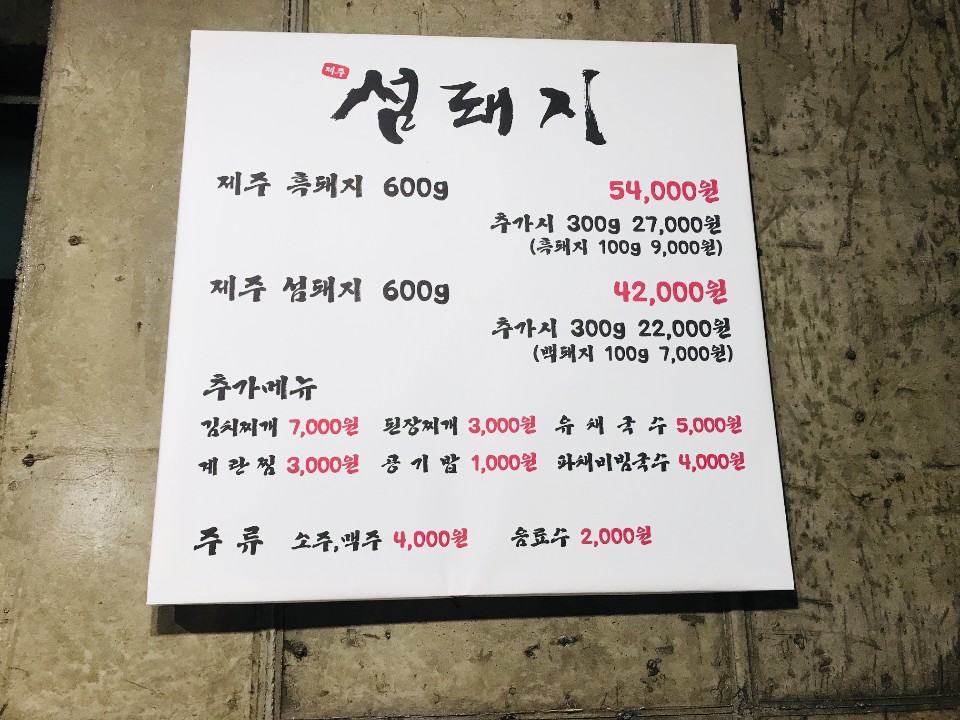 제주
섬돼지
제주 흑돼지 600g 54,000원
추가시 300g 27,000원
(흑돼지 100g 9,000원)
제주 섬돼지 600g 42,000원
추가시 300g 22,000원
(백돼지 100g 7,000원)
추가메뉴
김치찌개 7,000원 된장찌개 3,000원 유채국수 5,000원
계란찜 3,000원 공기밥 1,000원 파채비빔국수 4,000원
주류 소주,맥주 4,000원 음료수 2,000원